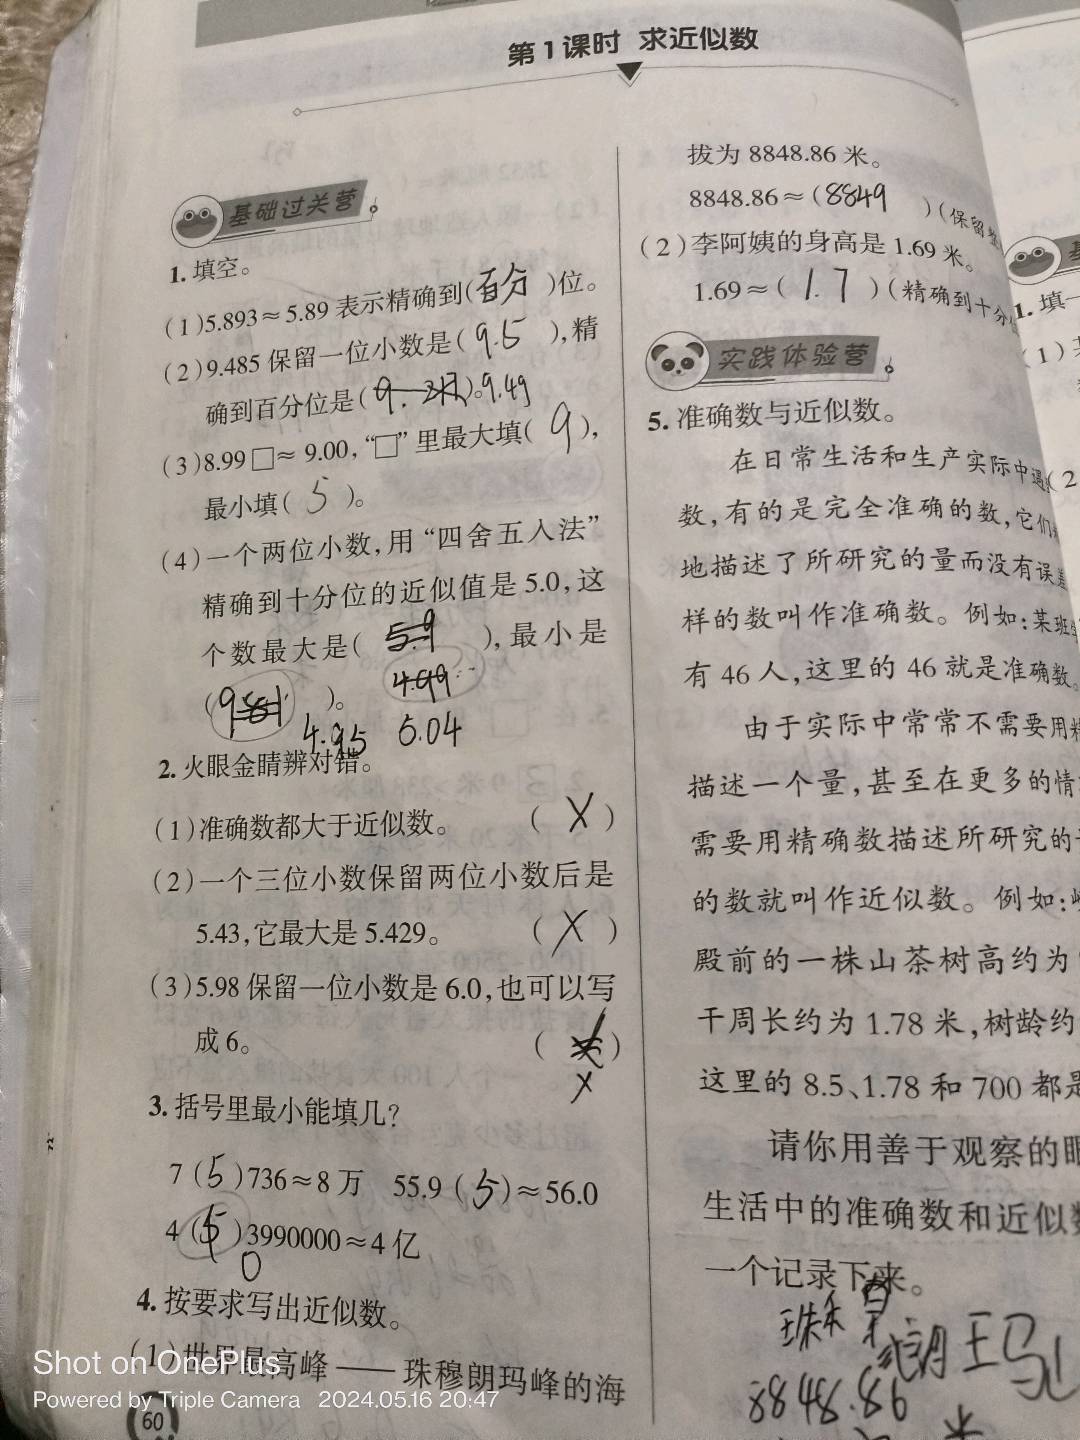 第1课时 求近似数
基础过关营
1. 填空。
(1)5.893≈5.89表示精确到(百分)位。
(2)9.485保留一位小数是(9.5),精
确到百分位是( )。9.49
(3)8.99□≈9.00,“□”里最大填(9),
最小填(5)。
(4)一个两位小数,用“四舍五入法”
精确到十分位的近似值是5.0,这
个数最大是(5.9),最小是
4.99
( )。
4.95 5.04
2. 火眼金睛辨对错。
(1)准确数都大于近似数。 (X)
(2)一个三位小数保留两位小数后是
5.43,它最大是5.429。 (X)
(3)5.98保留一位小数是6.0,也可以写
成6。 ( )
X
3. 括号里最小能填几?
7(5)736≈8万 55.9(5)≈56.0
4(5)3990000≈4亿
0
4. 按要求写出近似数。
(1)世界最高峰——珠穆朗玛峰的海
60
拔为8848.86米。
8848.86≈(8849)(保留整
(2)李阿姨的身高是1.69米。
1.69≈(1.7)(精确到十分
实践体验营
5. 准确数与近似数。
在日常生活和生产实际中遇
数,有的是完全准确的数,它们
地描述了所研究的量而没有误差
样的数叫作准确数。例如:某班
有46人,这里的46就是准确数。
由于实际中常常不需要用精
描述一个量,甚至在更多的情
需要用精确数描述所研究的
的数就叫作近似数。例如:
殿前的一株山茶树高约为
干周长约为1.78米,树龄约
这里的8.5、1.78和700都是
请你用善于观察的眼
生活中的准确数和近似数
一个记录下来。
8848.86
米
1. 填一
(1)
(2
Shot on OnePlus
Powered by Triple Camera 2024.05.16 20:47